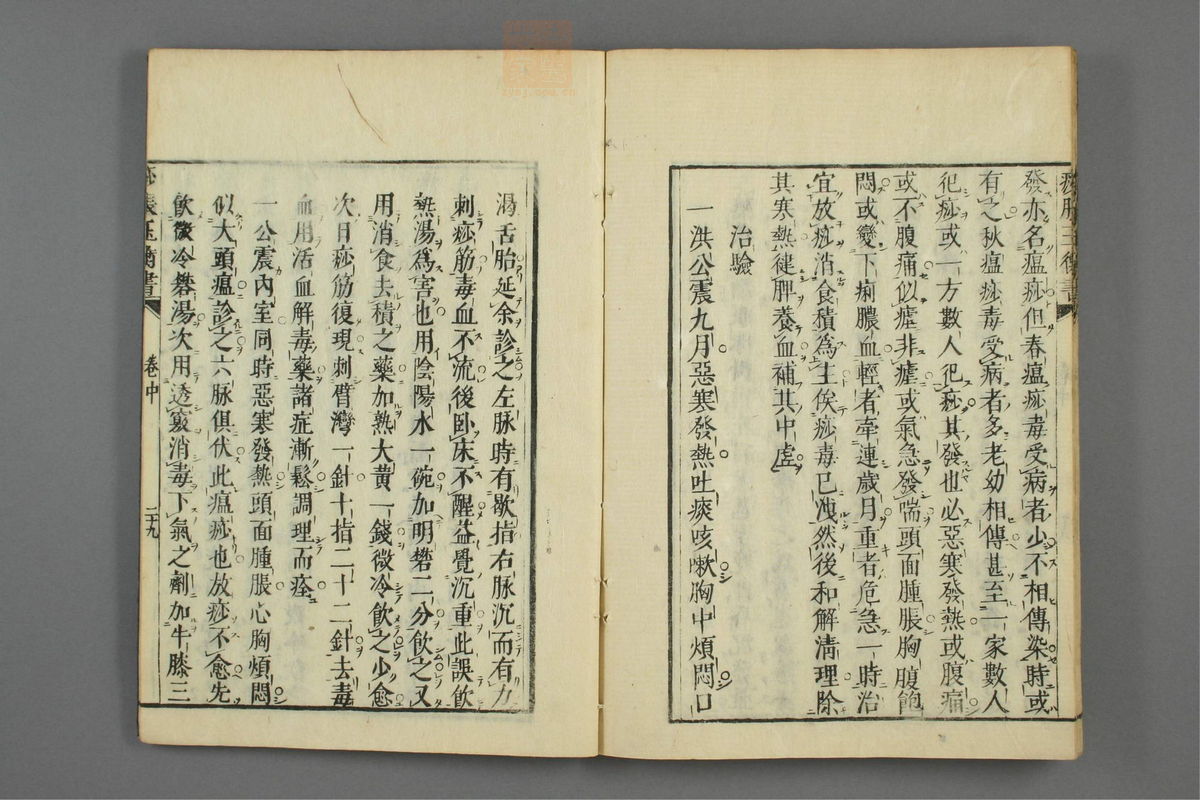 痧脹玉衡書
發亦名瘟痧但春瘟痧毒受病者少不相傳染時或
有之秋瘟痧毒受病者多老幼相傳甚至一家數人
犯痧或一方數人犯痧其發也必惡寒發熱或腹痛
或不腹痛似瘧非瘧或氣急發喘頭面腫脹胸腹飽
悶或變下痢膿血輕者牽連歲月重者危急一時治
宜放痧消食積為主俟痧毒已洩然後和解清理除
其寒熱健脾養血補其中虛
治驗
一洪公震九月惡寒發熱吐痰咳嗽胸中煩悶口
渴舌胎延余診之左脉時有歇指右脉沉而有力
刺痧筋毒血不流後卧床不醒益覺沉重此誤飲
熱湯為害也用陰陽水一碗加明礬二分飲之又
用消食去積之藥加熟大黄一錢微冷飲之少愈
次日痧筋復現刺臂灣一針十指二十二針去毒
血用活血解毒藥諸症漸鬆調理而痊
一公震內室同時惡寒發熱頭面腫脹心胸煩悶
似大頭瘟診之六脉俱伏此瘟痧也放痧不愈先
飲微冷礬湯次用透竅消毒下氣之劑加牛膝三
痧脹玉衡書
卷中
二十九